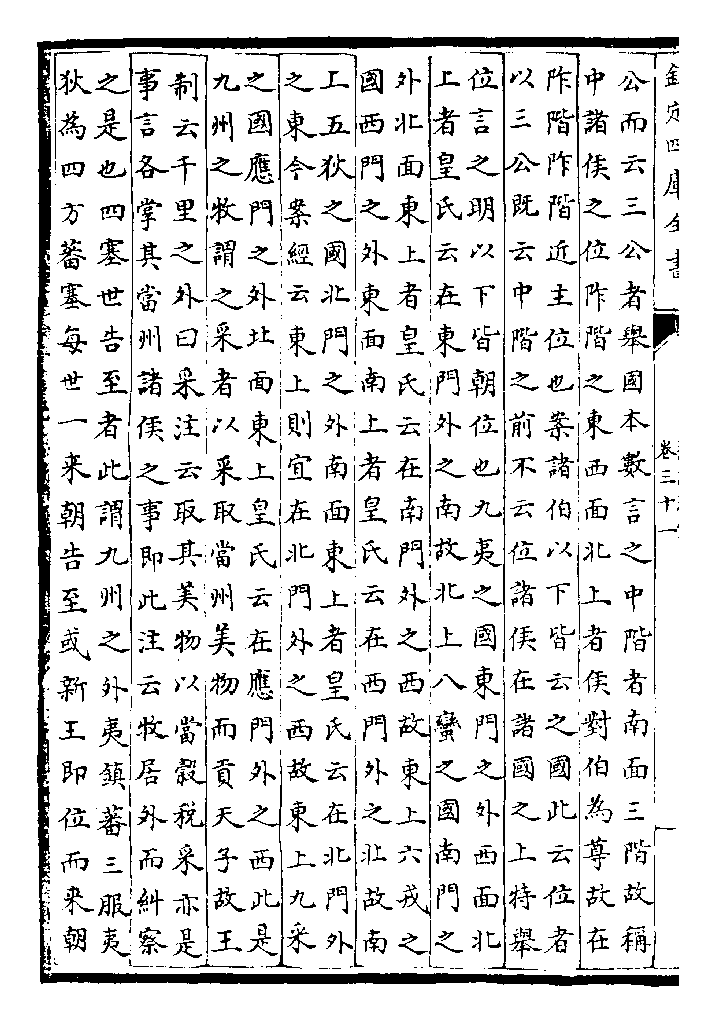 欽定四庫全書
卷三十一
公而云三公者舉國本數言之中階者南面三階故稱
中諸侯之位阼階之東西面北上者侯對伯為尊故在
阼階阼階近主位也案諸伯以下皆云之國此云位者
以三公既云中階之前不云位諸侯在諸國之上特舉
位言之明以下皆朝位也九夷之國東門之外西面北
上者皇氏云在東門外之南故北上八蠻之國南門之
外北面東上者皇氏云在南門外之西故東上六戎之
國西門之外東面南上者皇氏云在西門外之北故南
上五狄之國北門之外南面東上者皇氏云在北門外
之東今案經云東上則宜在北門外之西故東上九采
之國應門之外北面東上皇氏云在應門外之西此是
九州之牧謂之采者以采取當州美物而貢天子故王
制云千里之外曰采注云取其美物以當穀稅采亦是
事言各掌其當州諸侯之事即此注云牧居外而糾察
之是也四塞世告至者此謂九州之外夷鎮蕃三服夷
狄為四方蕃塞每世一來朝告至或新王即位而來朝